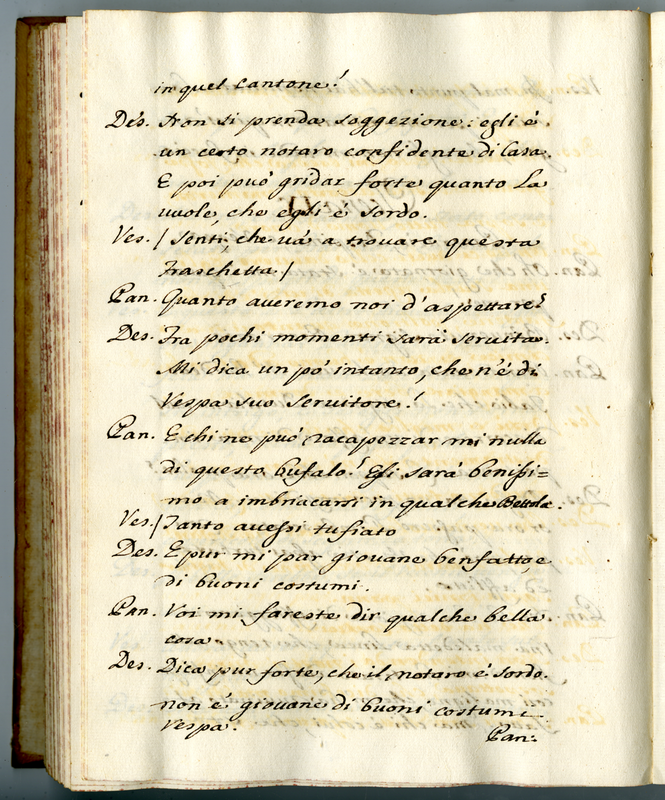 in quel Cantone!
Des. Non si prenda soggezione: egli é
un certo notaro confidente di Casa.
E poi può gridar forte quanto La
vuole, che egli é sordo.
Ves. / Senti, che và a trovare questa
Fraschetta /
Pan. Quanto averemo noi d'aspettare?
Des. Fra pochi momenti sarà servita.
Mi dica un pó intanto, che n'é di
Vespa suo servitore!
Pan. E chi ne può racapezzar mi nulla
di questo bufalo! Egli sarà benissi=
mo a imbriacarsi in qualche Bettola.
Ves. / Tanto avessi tu fiato
Des. E pur mi par giovane benfatto, e
di buoni costumi.
Pan. Voi mi fareste dir qualche bella
cosa.
Des. Dica pur forte, che il notaro é sordo.
non é giovane di buoni costumi
Vespa.
Pan: